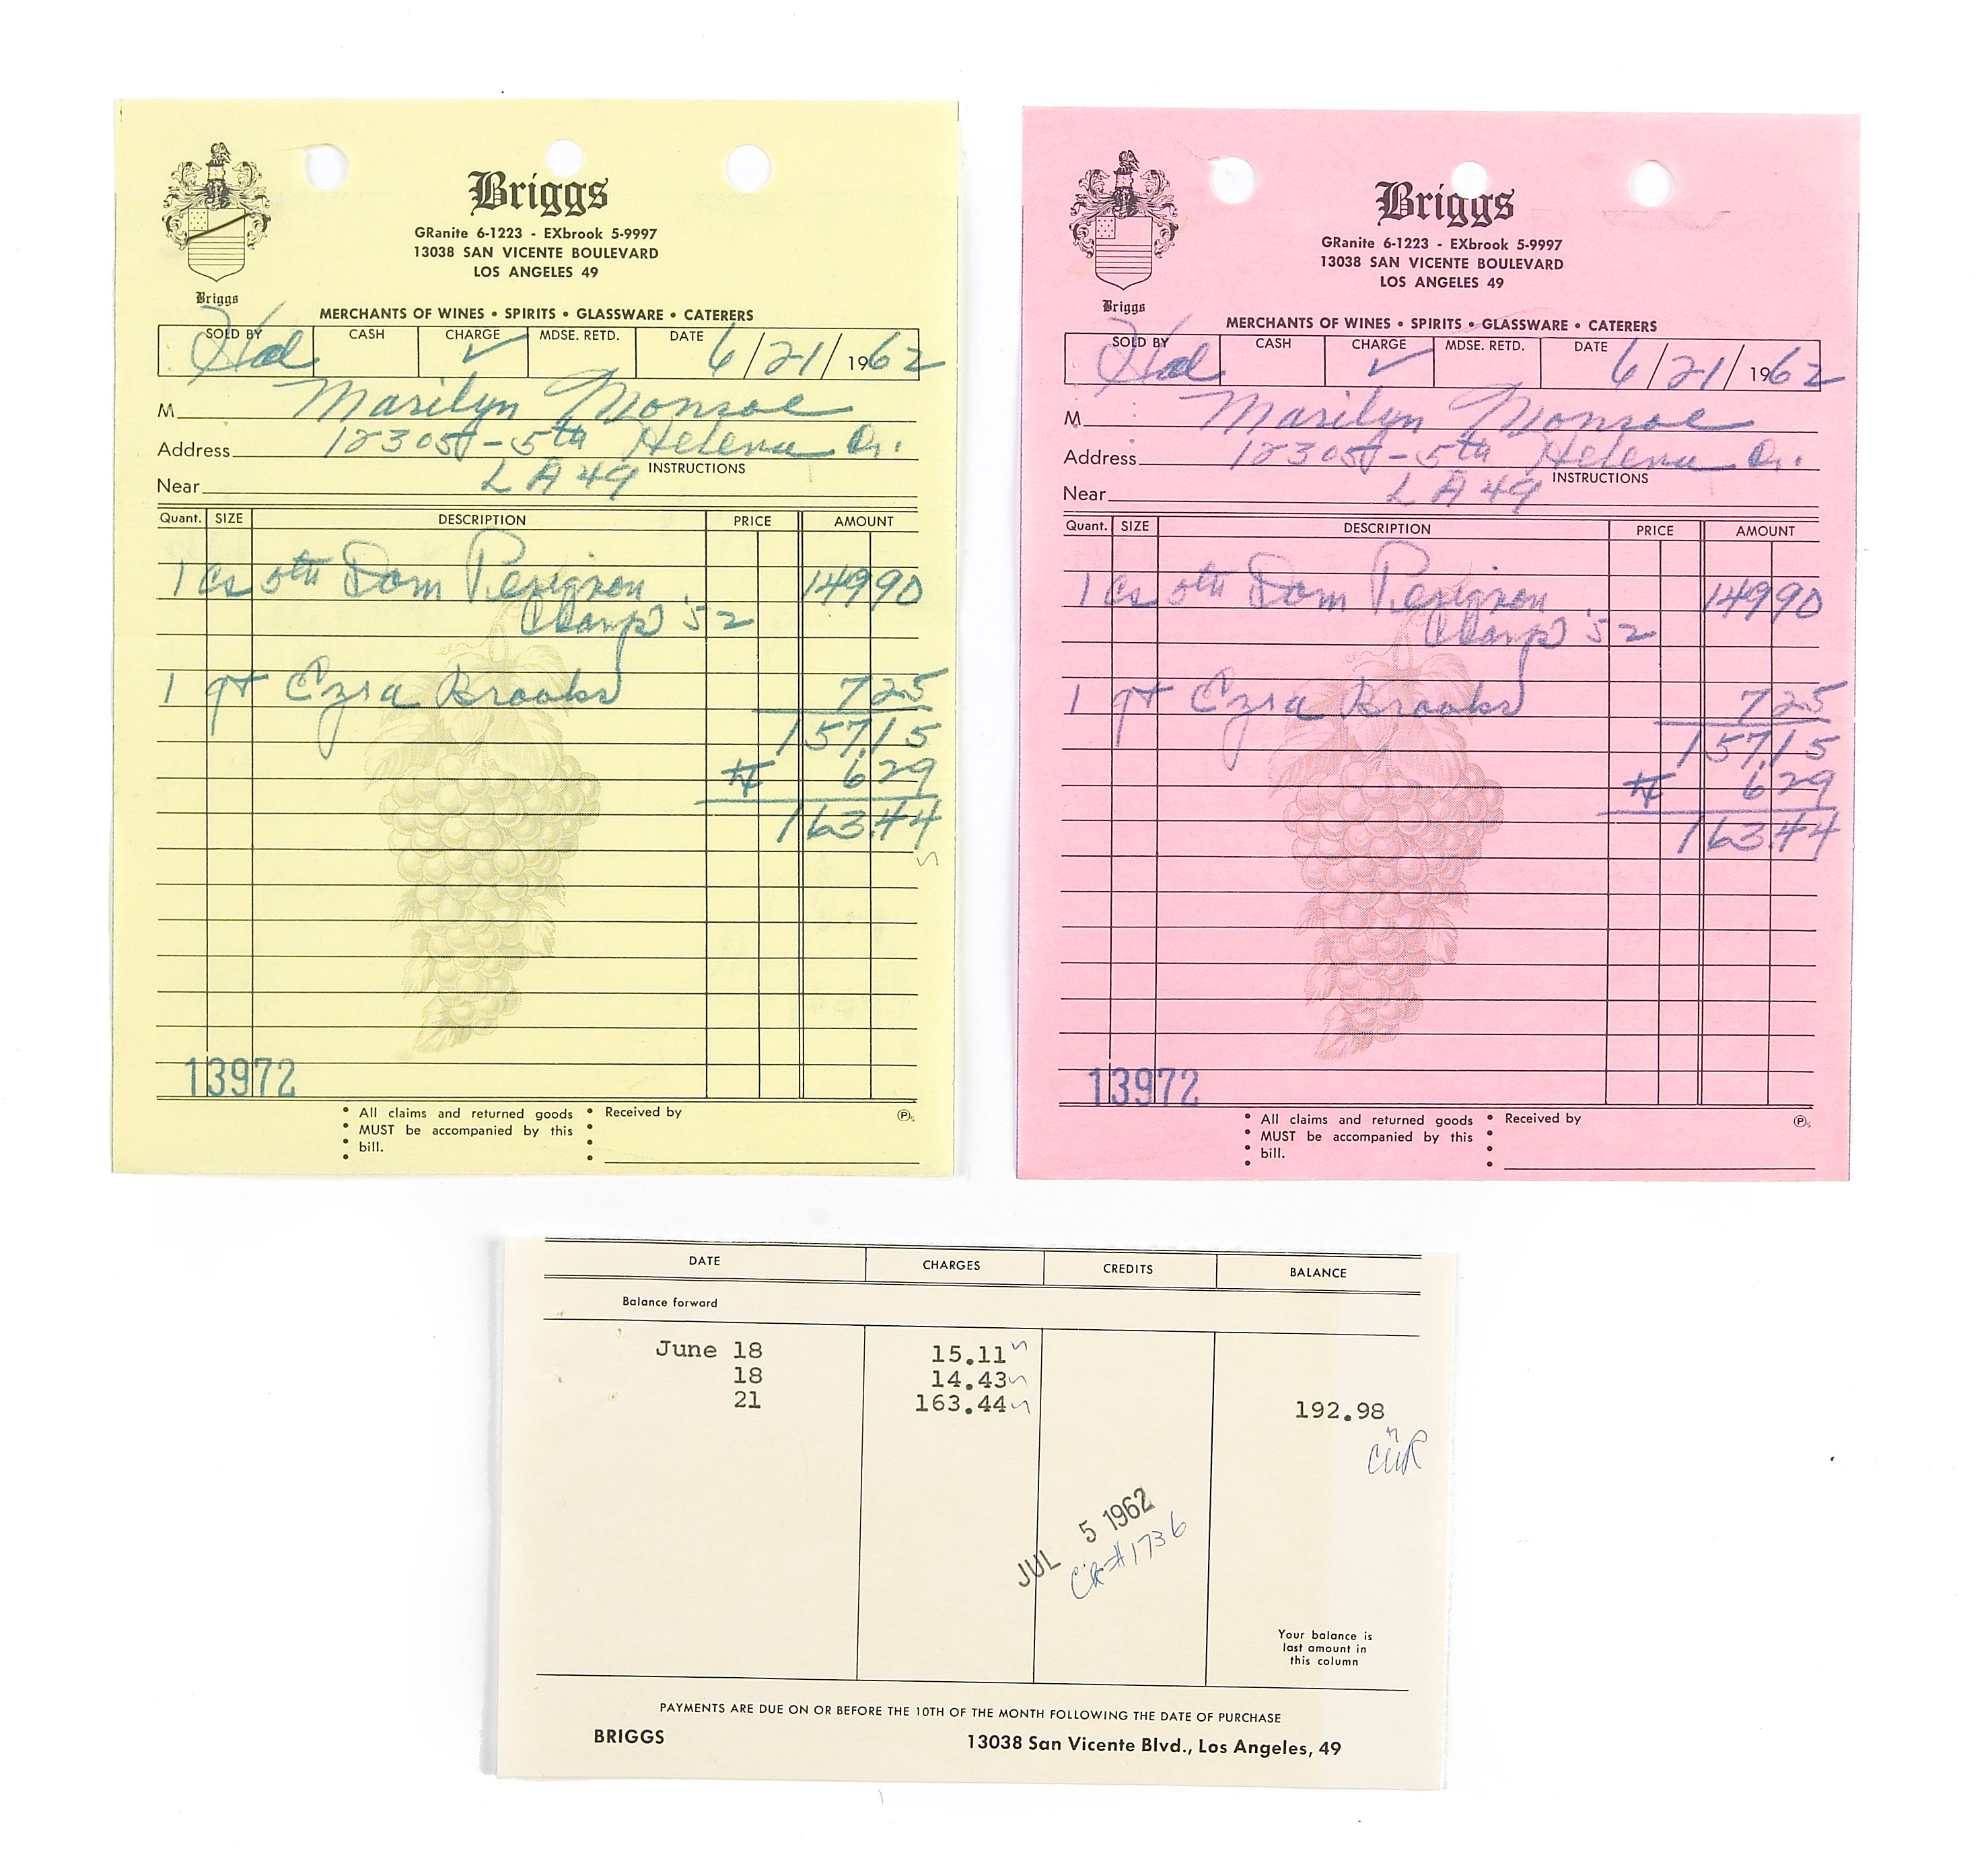 Briggs
GRanite 6-1223 - EXbrook 5-9997
13038 SAN VICENTE BOULEVARD
LOS ANGELES 49
Briggs
MERCHANTS OF WINES • SPIRITS • GLASSWARE • CATERERS
SOLD BY CASH CHARGE MDSE. RETD. DATE
Hal ✓ 6/21/1962
M Marilyn Monroe
Address 12305-5th Helena Dr.
INSTRUCTIONS
Near LA 49
Quant. SIZE DESCRIPTION PRICE AMOUNT
1 cs 5th Dom Perignon 149 90
Champ '52
1 qt Ezra Brooks 7 25
157.15
6 29
163.44
13972
All claims and returned goods
MUST be accompanied by this
bill.
Received by
Briggs
GRanite 6-1223 - EXbrook 5-9997
13038 SAN VICENTE BOULEVARD
LOS ANGELES 49
Briggs
MERCHANTS OF WINES • SPIRITS • GLASSWARE • CATERERS
SOLD BY CASH CHARGE MDSE. RETD. DATE
Hal ✓ 6/21/1962
M Marilyn Monroe
Address 12305-5th Helena Dr.
INSTRUCTIONS
Near LA 49
Quant. SIZE DESCRIPTION PRICE AMOUNT
1 cs 5th Dom Perignon 149 90
Champ '52
1 qt Ezra Brooks 7 25
157.15
6 29
163.44
13972
All claims and returned goods
MUST be accompanied by this
bill.
Received by
DATE CHARGES CREDITS BALANCE
Balance forward
June 18 15.11
18 14.43
21 163.44 192.98
JUL 5 1962
Ck#1736
Your balance is
last amount in
this column
PAYMENTS ARE DUE ON OR BEFORE THE 10TH OF THE MONTH FOLLOWING THE DATE OF PURCHASE
BRIGGS 13038 San Vicente Blvd., Los Angeles, 49